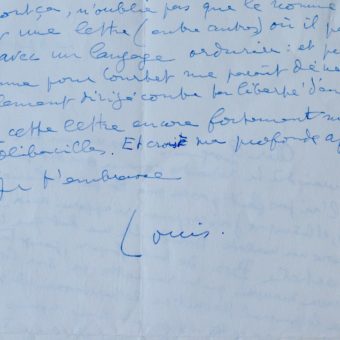 ça, n'oublie pas que le nommé
une lettre (entre autres) où il
avec un langage ordurier : et
pour Courbet me paraît
dirigé contre ta liberté d'
cette lettre encore fortement
colibacilles. Et crois ma profonde
Je t'embrasse
Louis.